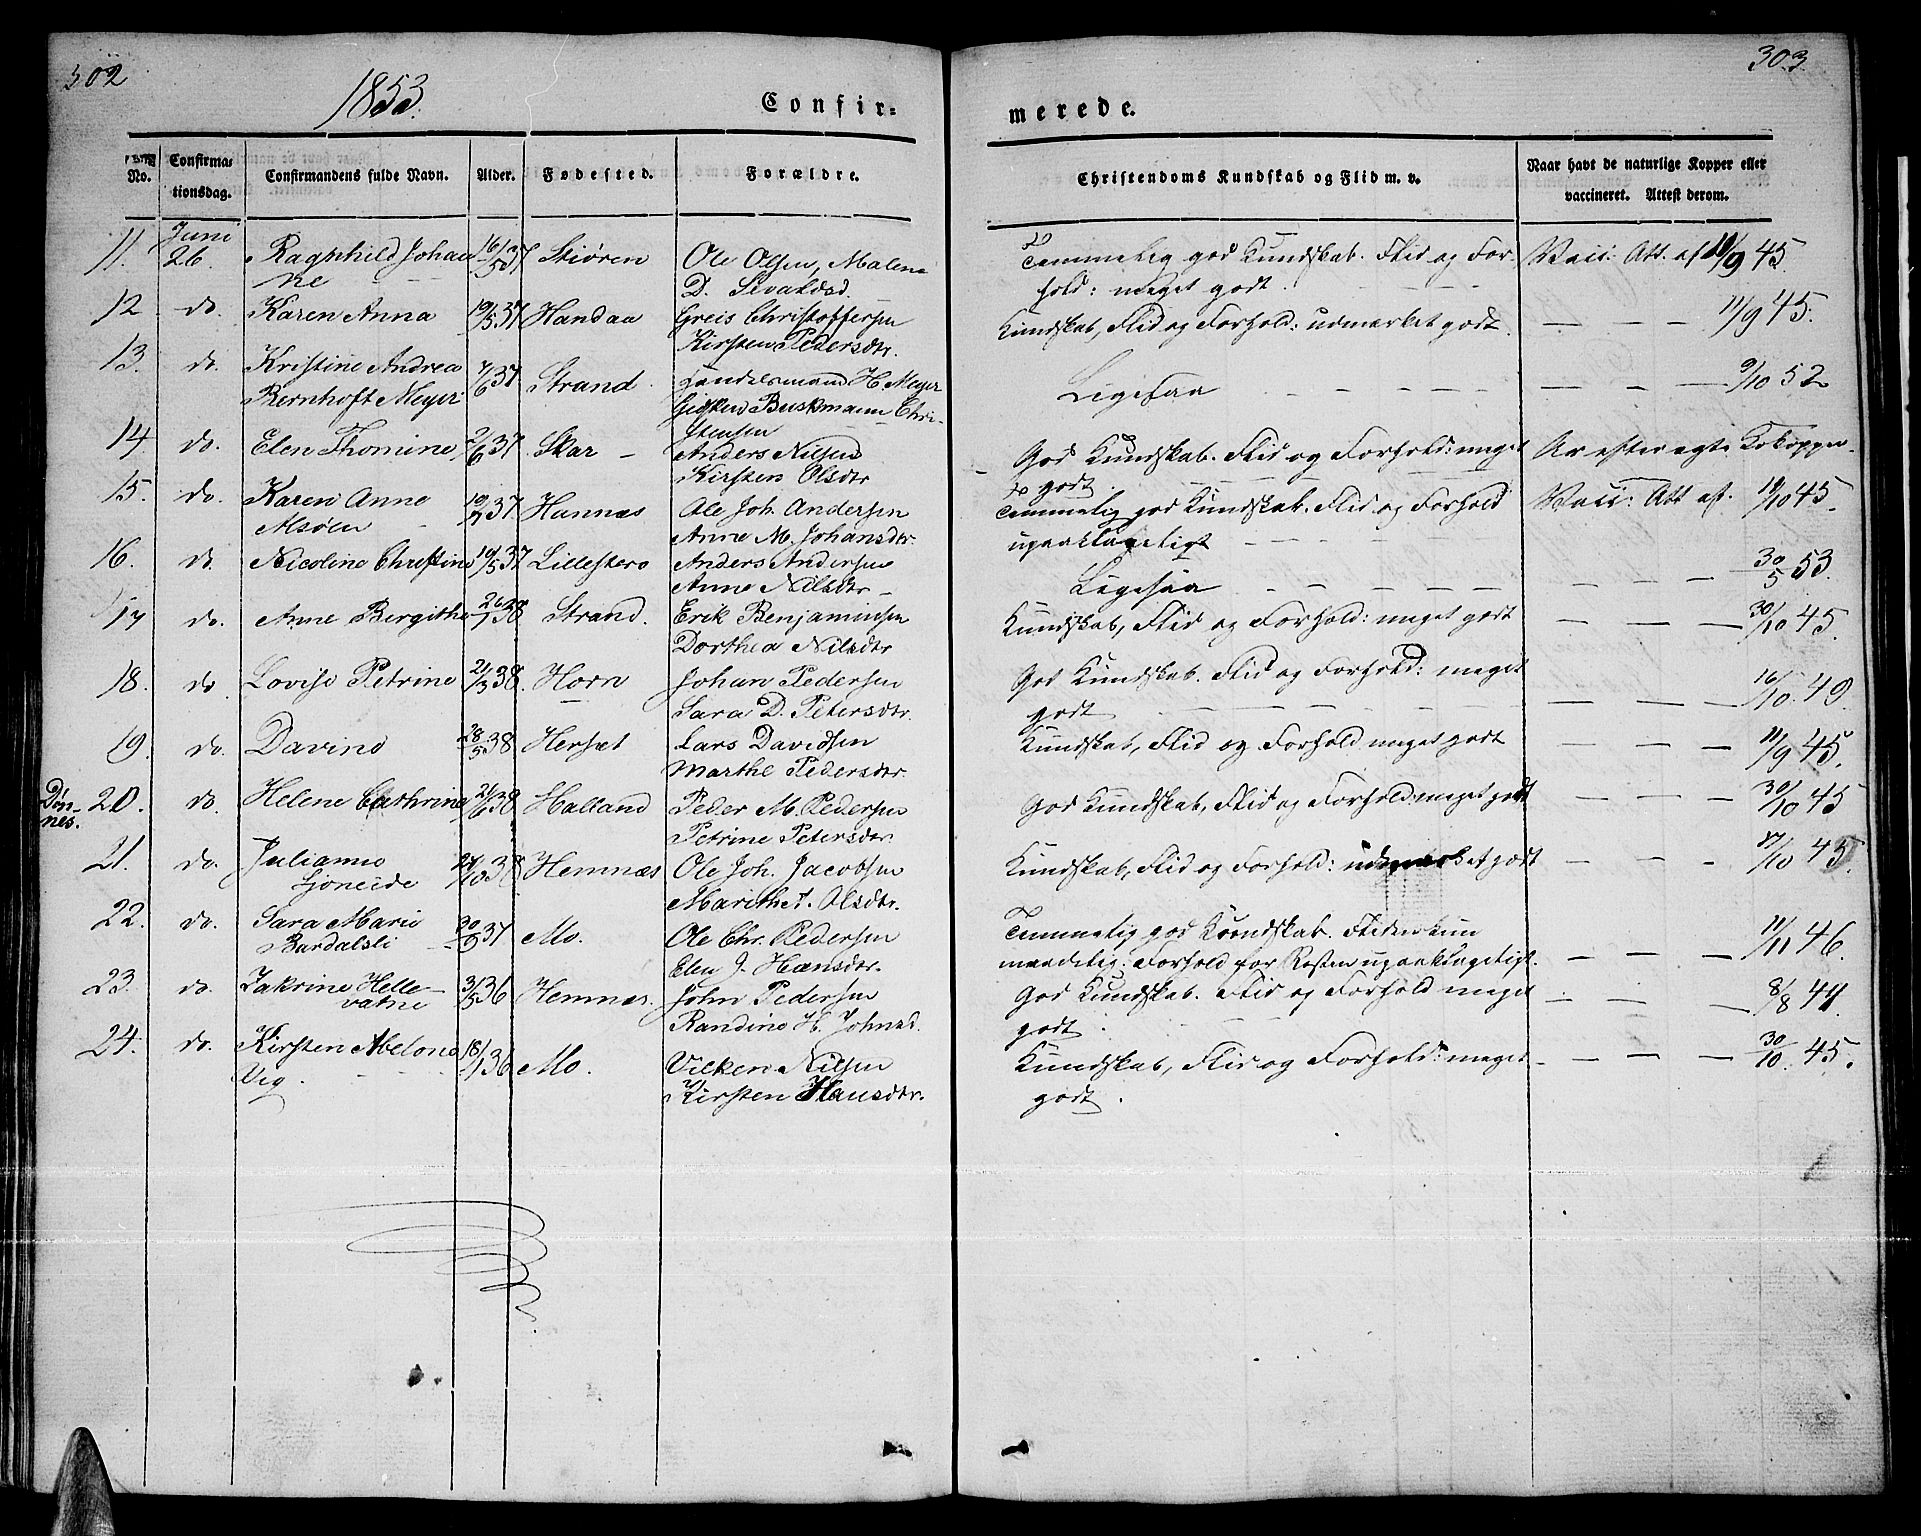 302
1853.
Confir-
No.
Confirma-
tionsdag.
Confirmandens fulde Navn.
Alder.
Fødested.
Forældre.
11. Juni 26. Raghnhild Johan 16/5 37 Stiøren Ole Olsen, Malena
ne D. Sivaldsd.
12 do. Karen Anna 19/5 37 Handaa Greis Christoffersen
Kirsten Pedersdtr.
13. do. Kristine Andrea 7/6 37 Strand. Handelsmand H. Meyer
Bernhoft Meyer Gidsken Buskmann Chri-
stensen
14. do. Elen Thomine 2/6 37 Skar – Anders Nilsen
Kirsten Olsdtr
15. do. Karen Anne 19/7 37 Hannæs Ole Joh. Andersen
Alsøen Anne M. Johansdtr.
16. do. Nicoline Christine 19/5 37 Lillestero Anders Andersen
Anne Nilsdtr –
17 do. Anne Bergithe 26/1 38 Strand. Erik Benjaminsen
Dorthea Nilsdtr
18. do Lovise Petrine 21/3 38. Horn Johan Pedersen
Sara D. Petersdtr.
19. do. Davina 28/5 38 Hersæt Lars Davidsen
Marthe Pedersdtr.
Døn-
nes.
20. do. Helene Cathrine 21/6 38 Halland Peder M. Pedersen
Petrine Petersdtr.
21. do. Julianne 24/10 38 Hemnæs Ole Joh. Jacobsen
Ljoneide Marithe T. Olsdtr.
22. do. Sara Marie 30/9 37 Mo. Ole Chr. Pedersen
Bardalsli Elen J. Hansdtr.
23. do. Jakrine Helle- 3/5 36 Hemnæs. John Pedersen
vatne Randine H. Johnsd.
24. do. Kirsten Abelone 18/1 36 Mo. Vilken Nilsen
Vig. Kirsten Hansdtr.
303.
merede.
Christendoms Kundskab og Flid m. v.
Naar havt de naturlige Kopper eller
vaccineret. Attest derom.
Temmelig god Kundskab. Flid og For- Vacc: Att. af 11/9 45.
hold: meget godt.
Kundskab, Flid og Forhold: udmærket godt. — — 11/9 45.
Ligesaa — — — 9/10 52
God Kundskab. Flid og Forhold: meget Ar efter ægte Kokopper.
godt.
Temmelig god Kundskab. Flid og Forhold Vacc: Att af. 19/10 45.
upaaklageligt
Ligesaa — — — 30/5 53.
Kundskab, Flid og Forhold: meget godt — — — 30/10 45.
God Kundskab. Flid og Forhold: meget
godt — — — 16/10. 49.
Kundskab, Flid og Forhold meget godt — — — 11/9 45.
God Kundskab, Flid og Forhold: meget godt — — — 30/10 45
Kundskab, Flid og Forhold: udmærket godt — — — 17/10 45.
Temmelig god Kundskab. Fliden kun
maadelig: Forhold for Resten upaaklageligt. — — — 11/11 46.
God Kundskab. Flid og Forhold meget — — — 8/8 44.
godt.
Kundskab, Flid og Forhold: meget — — — 30/10. 45.
godt.